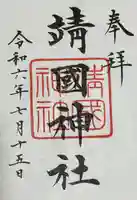 奉拝
靖國神社
令和六年七月十五日
靖國神社